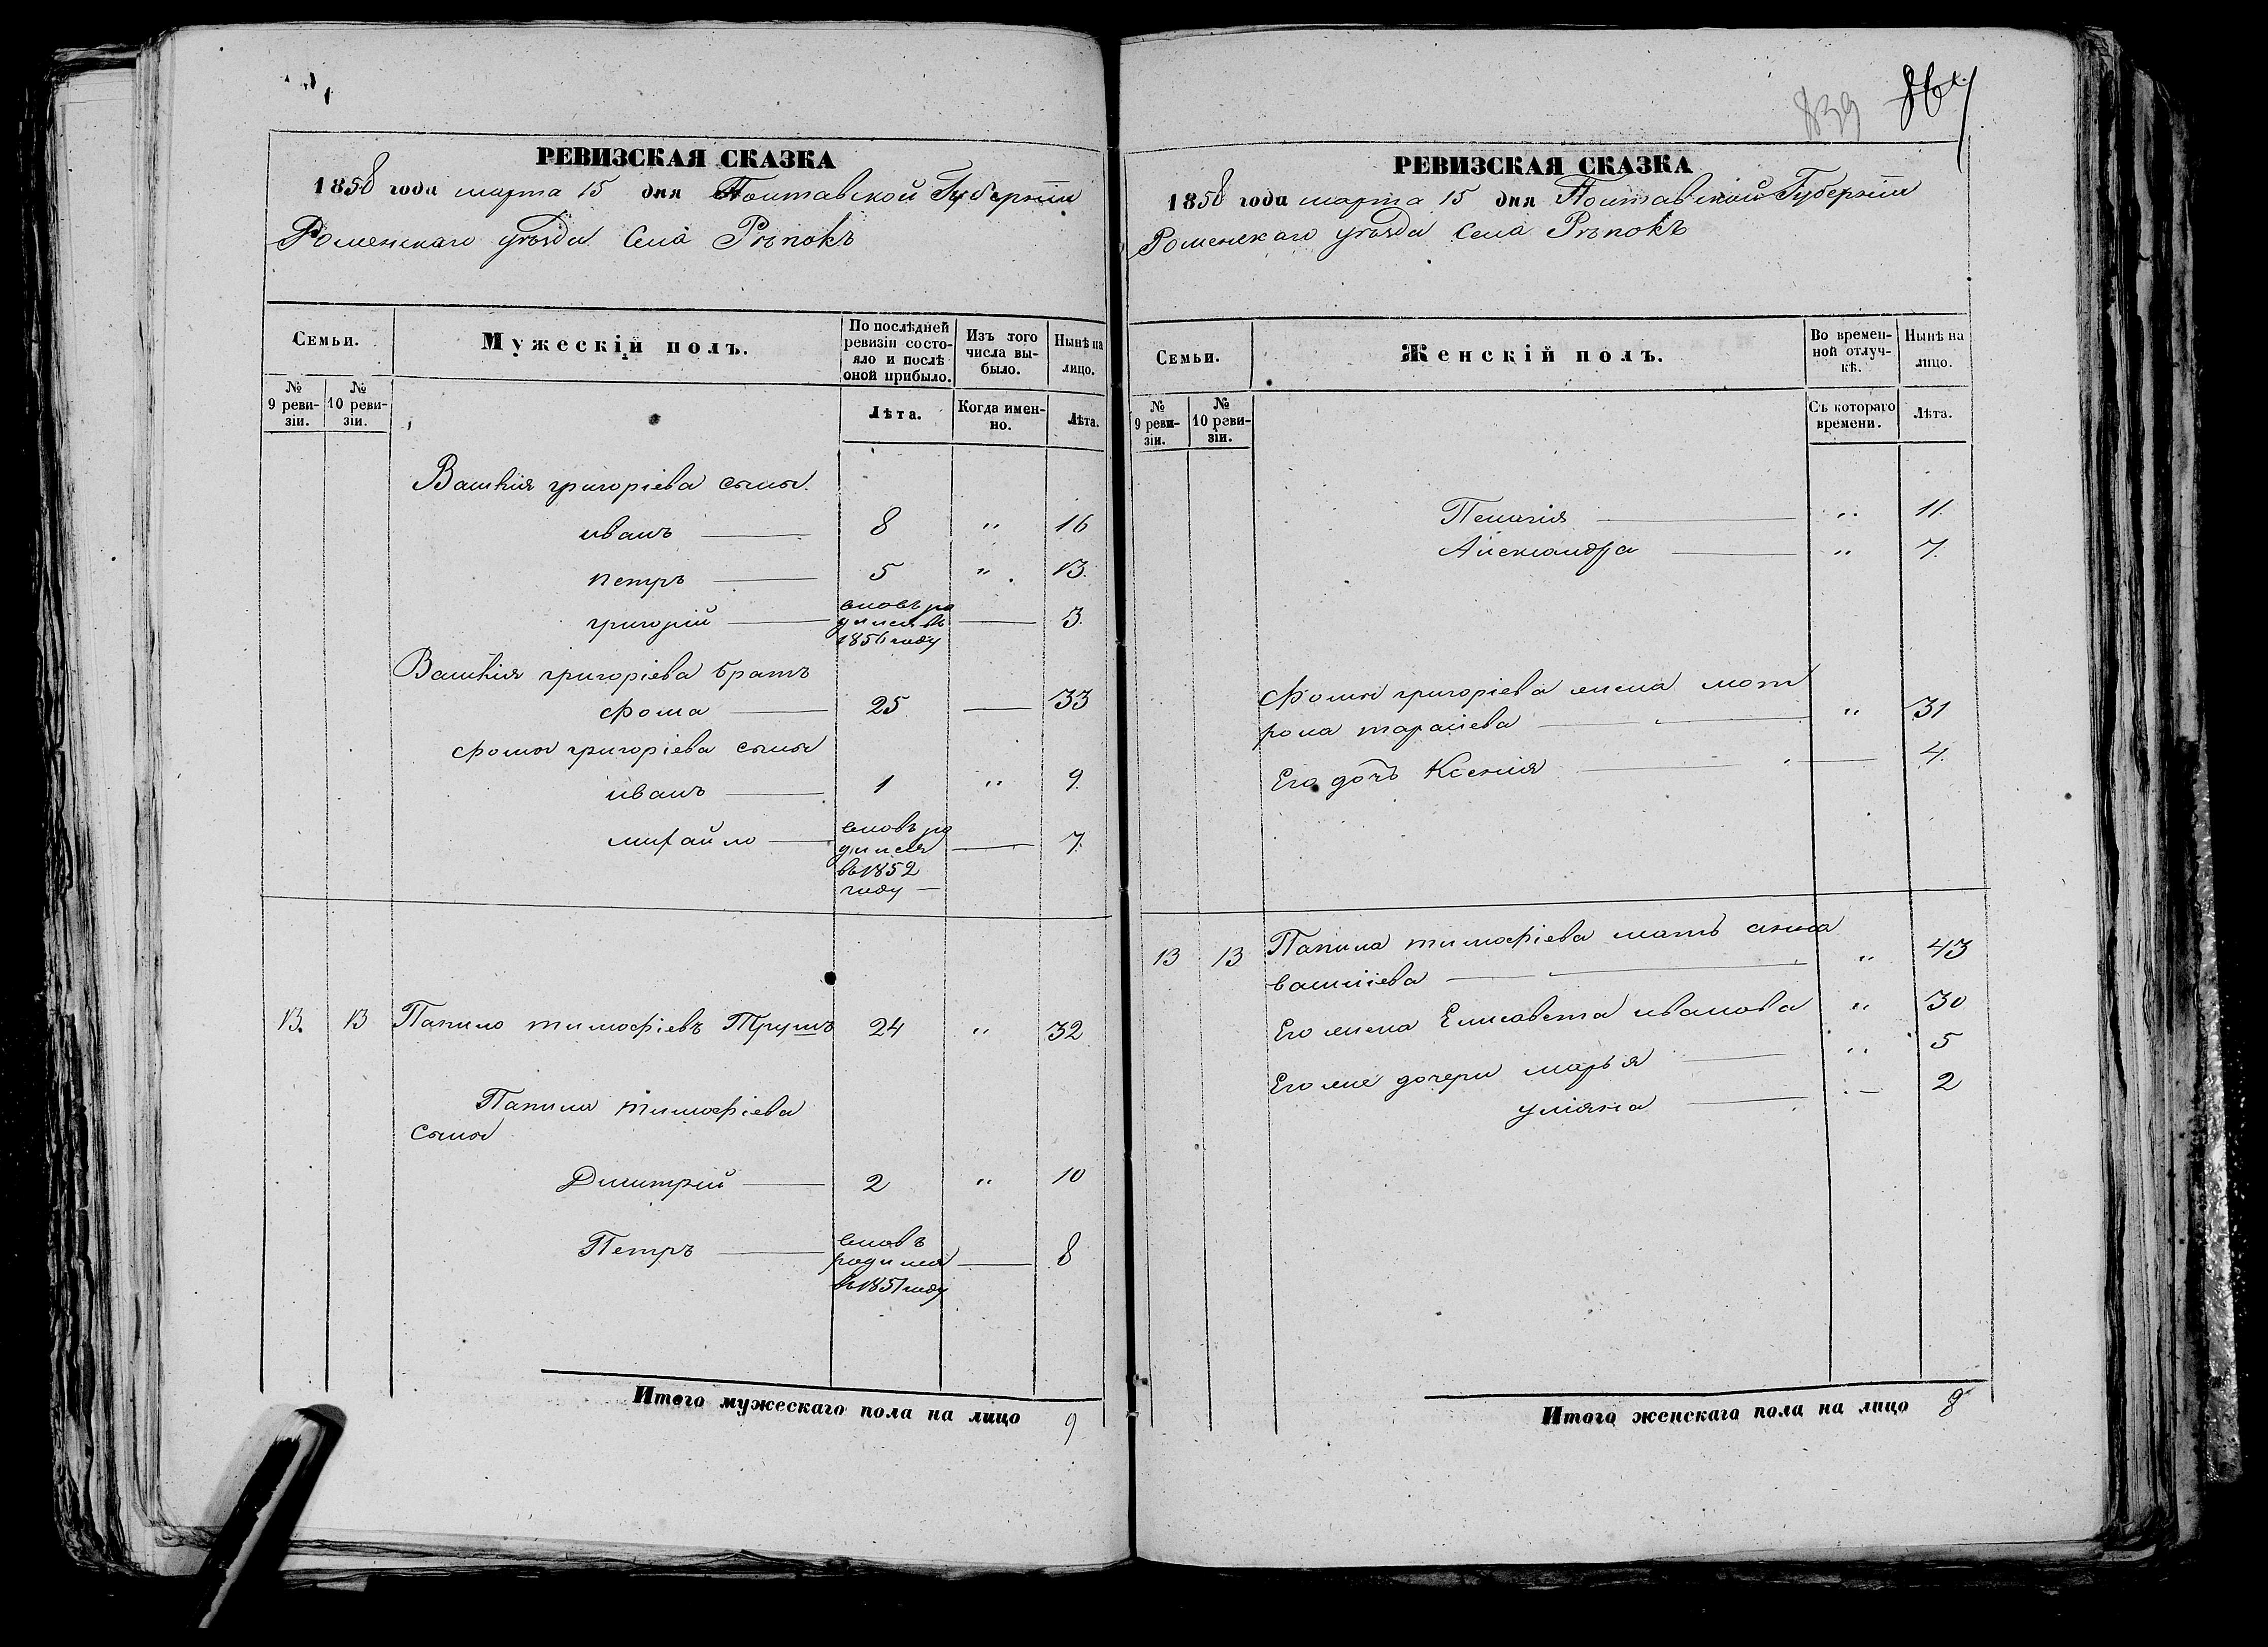 РЕВИЗСКАЯ СКАЗКА
1858 года марта 15 дня Полтавской Губерніи
Роменскаго уѣзда Села Рѣпокъ
Семьи.
Мужескій полъ.
По послѣдней ревизіи состояло и послѣ оной прибыло.
Изъ того числа выбыло.
Нынѣ на лицо.
№ 9 ревизіи.
№ 10 ревизіи.
Лѣта.
Когда именно.
Лѣта.
Василія григоріева сыны.
иванъ — 8 " 16
петръ — 5 " 13.
григорій — вновь родился въ 1856 году — 3
Василія григоріева братъ
Фома — 25 — 33
Фомы григоріева сыны
иванъ — 1 " 9.
михайло — вновь родился въ 1852 году — 7.
13. 13 Панило тимофіевъ Трушъ 24 " 32
Панила тимофіева
сыны
Димитрій — 2 " 10
Петръ — вновь родился въ 1851 году — 8
Итого мужескаго пола на лицо 9
839 864
РЕВИЗСКАЯ СКАЗКА
1858 года марта 15 дня Полтавской Губерніи
Роменскаго уѣзда Села Рѣпокъ
Семьи.
Женскій полъ.
Во временной отлучкѣ.
Нынѣ на лицо.
№ 9 ревизіи.
№ 10 ревизіи.
Съ котораго времени.
Лѣта.
Пелагія — " 11.
Александра — " 7.
Фомы григоріева жена мот
рона тарасіева — " 31
Его дочь Ксенія — 4.
13 13 Панила тимофіева мать анна
василіева — " 43
Его жена Елисавета иванова " 30
Его же дочери марья — " 5
уліяна — 2
Итого женскаго пола на лицо 8